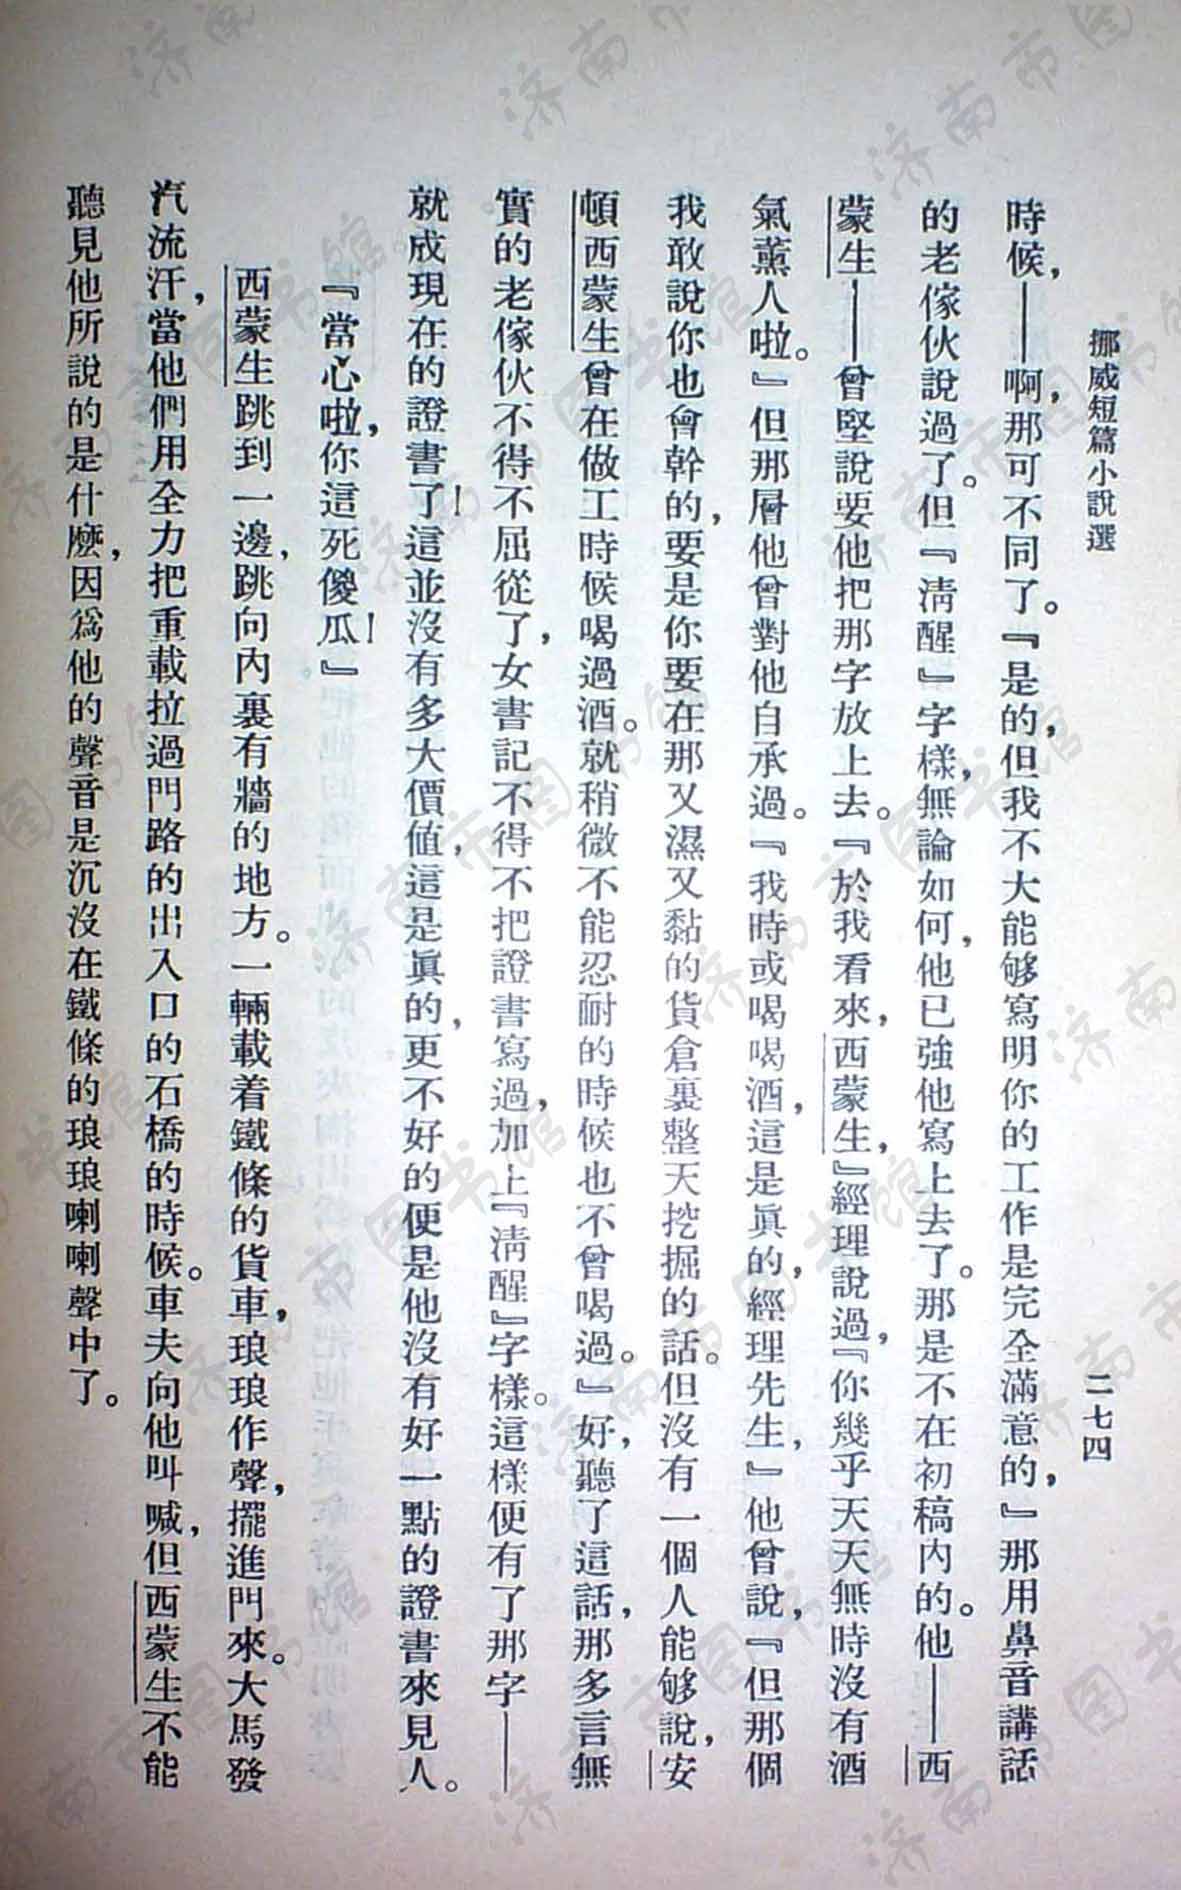 挪威短篇小說選
二七四
時候，——啊，那可不同了。『是的，但我不大能够寫明你的工作是完全滿意的，』那用鼻音講話
的老傢伙說過了。但『淸醒』字樣，無論如何，他已強他寫上去了。那是不在初稿內的。他——西
蒙生——曾堅說要他把那字放上去。『於我看來，西蒙生，』經理說過，『你幾乎天天無時沒有酒
氣薰人啦。』但那層他曾對他自承過。『我時或喝喝酒，這是眞的，經理先生，』他曾說，『但那個
我敢說你也會幹的，要是你要在那又濕又黏的貨倉裏整天挖掘的話。但沒有一個人能够說，安
頓西蒙生曾在做工時候喝過酒。就稍微不能忍耐的時候也不曾喝過。』好，聽了這話，那多言無
實的老傢伙不得不屈從了，女書記不得不把證書寫過，加上『淸醒』字樣。這樣便有了那字——
就成現在的證書了！這並沒有多大價值，這是眞的，更不好的便是他沒有好一點的證書來見人。
『當心啦，你這死傻瓜！』
西蒙生跳到一邊，跳向內裏有牆的地方。一輛載着鐵條的貨車，琅琅作聲，擺進門來。大馬發
汽流汗，當他們用全力把重載拉過門路的出入口的石橋的時候。車夫向他叫喊，但西蒙生不能
聽見他所說的是什麼，因爲他的聲音是沉沒在鐵條的琅琅喇喇聲中了。
济南市图书馆